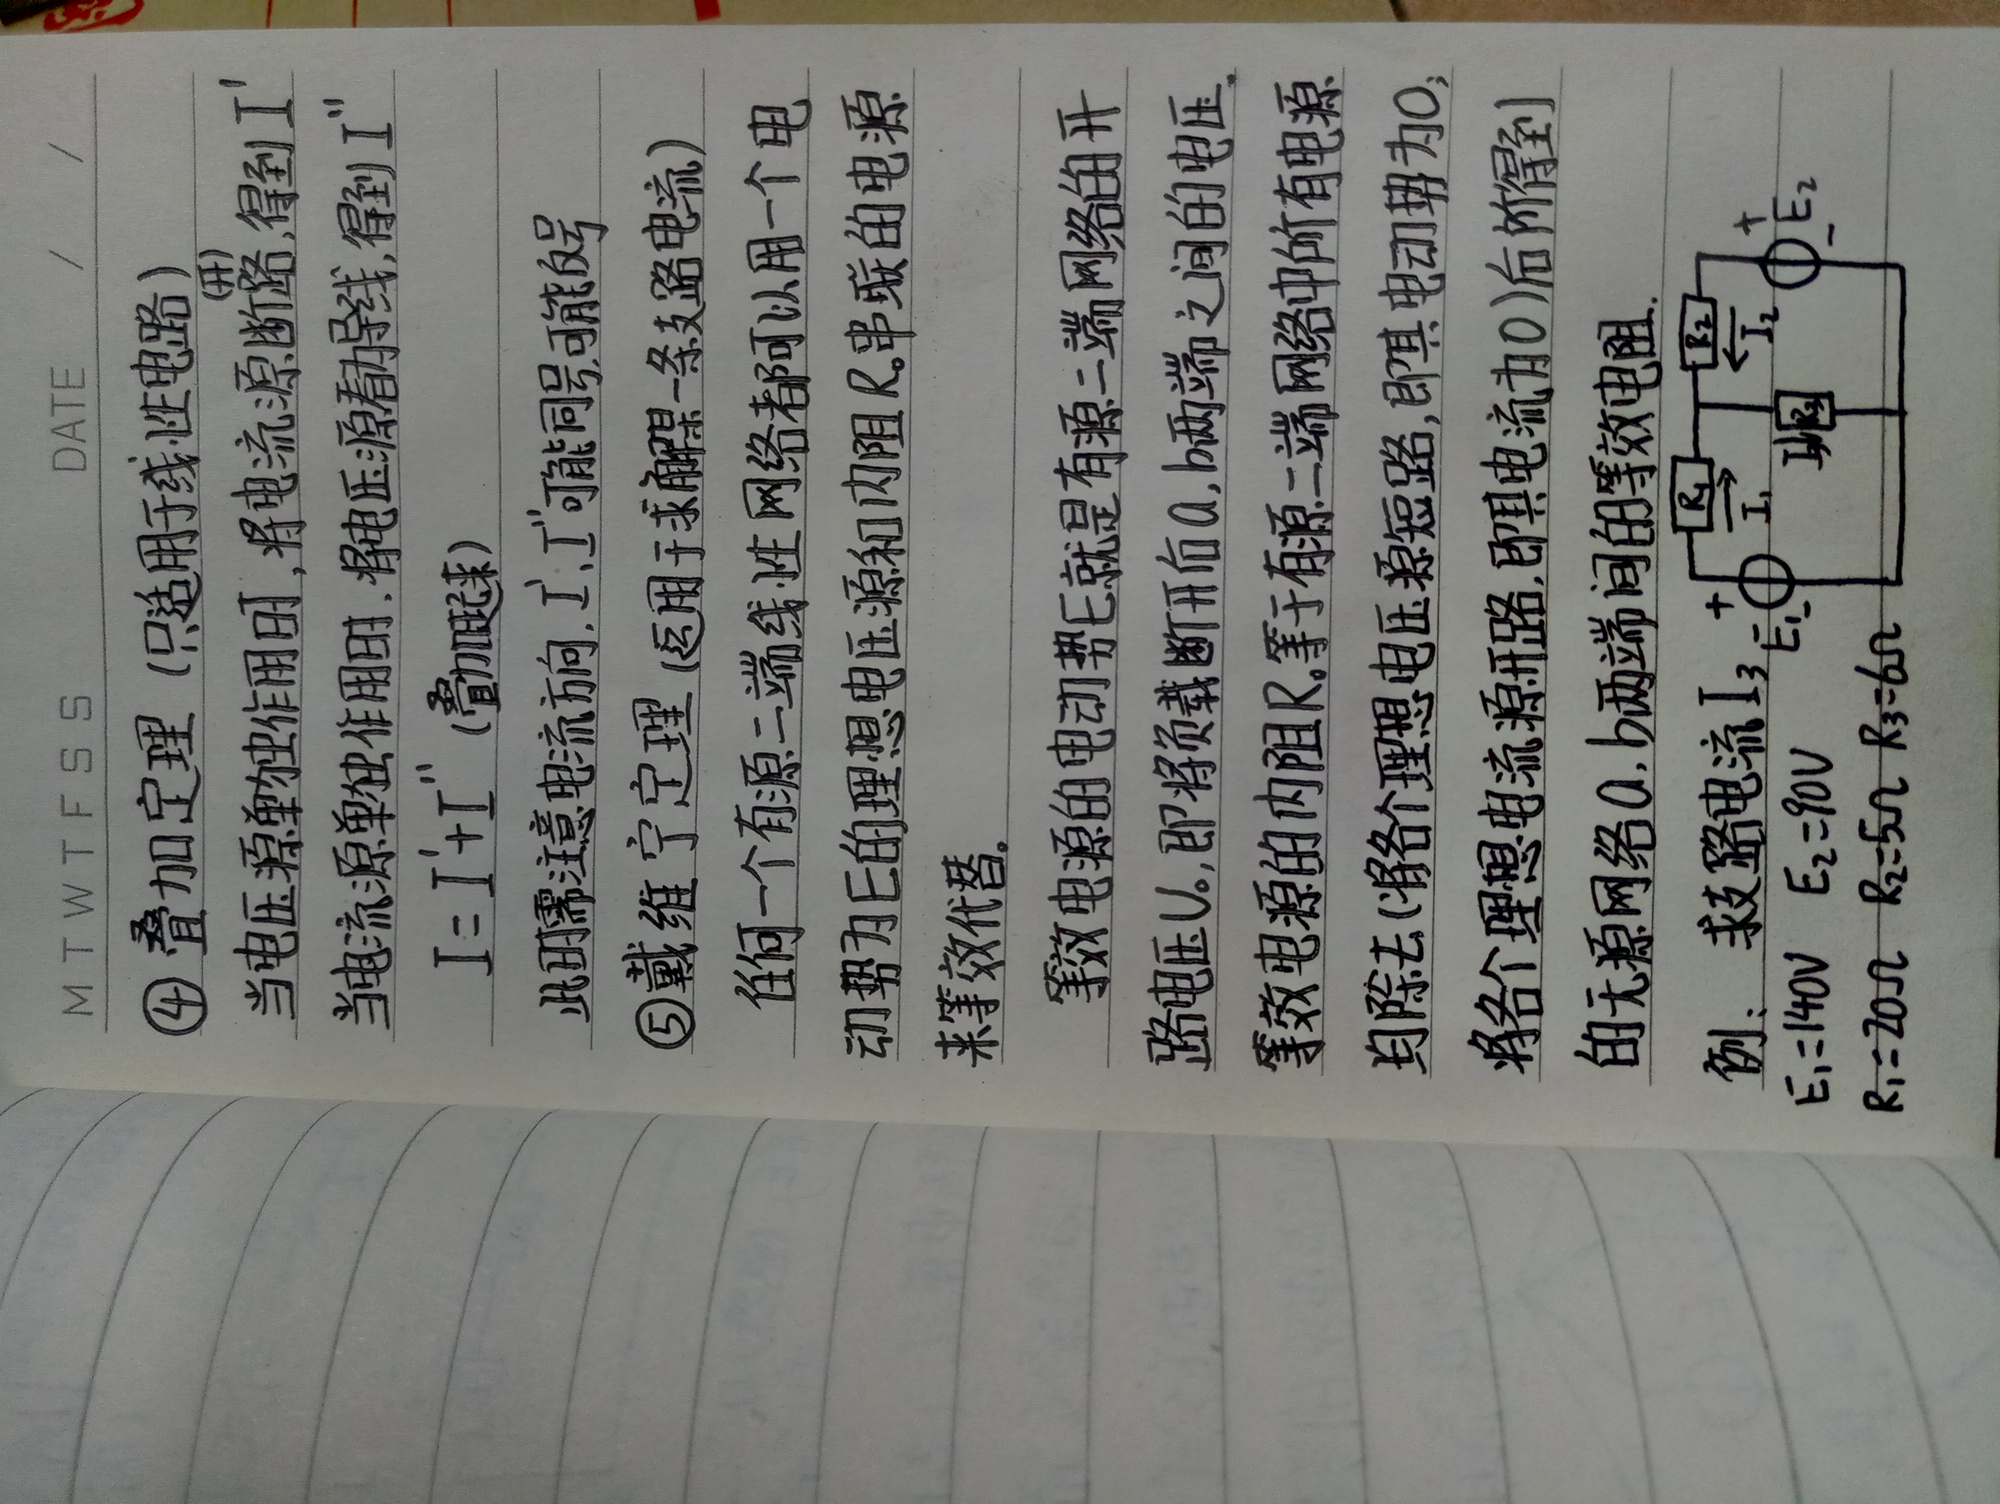 M T W T F S S DATE / /
④ 叠加定理 (只适用于线性电路)
当电压源单独作用时,将电流源断路(开),得到 I'
当电流源单独作用时,将电压源看为导线,得到 I''
I = I' + I'' (叠加起来)
此时需注意电流方向, I'、I''可能同号,可能反号
⑤ 戴维宁定理 (运用于求解某一条支路电流)
任何一个有源二端线性网络都可以用一个电
动势为E的理想电压源和内阻R₀串联的电源
来等效代替。
等效电源的电动势E就是有源二端网络的开
路电压U₀,即将负载断开后a,b两端之间的电压。
等效电源的内阻R₀等于有源二端网络中所有电源
均除去(将各个理想电压源短路,即其电动势为0;
将各个理想电流源开路,即其电流为0)后所得到
的无源网络a,b两端间的等效电阻.
例: 求支路电流I₃
E₁=140V E₂=90V
R₁=20Ω R₂=5Ω R₃=6Ω
R₁ R₂
+ I₁ I₂ +
E₁ I₃ R₃ E₂
- -